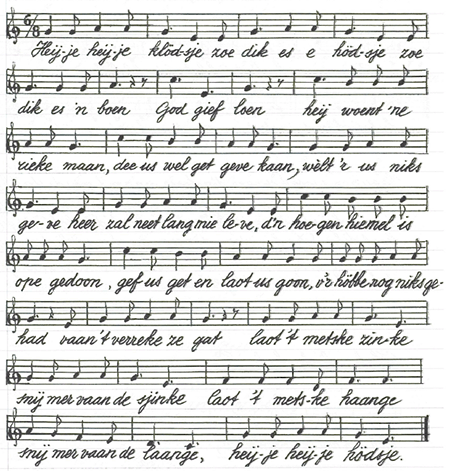 6/8
Heij-je heij-je klòd-sje zoe dik es e höd-sje zoe
dik es 'n boen God gief loen heij woent 'ne
rieke maan, dee us wel get geve kaan, wèlt 'r us niks
ge-ve heer zal neet lang mie le-ve, d'n hoe-gen hiemel is
ope gedoon, gef us get en laot us goon, v'r höbbe nog niks ge-
had vaan 't verreke ze gat laot 't metske zin-ke
snij mer vaan de sjinke laot 't mets-ke haange
snij mer vaan de laange, heij-je heij-je hödsje.